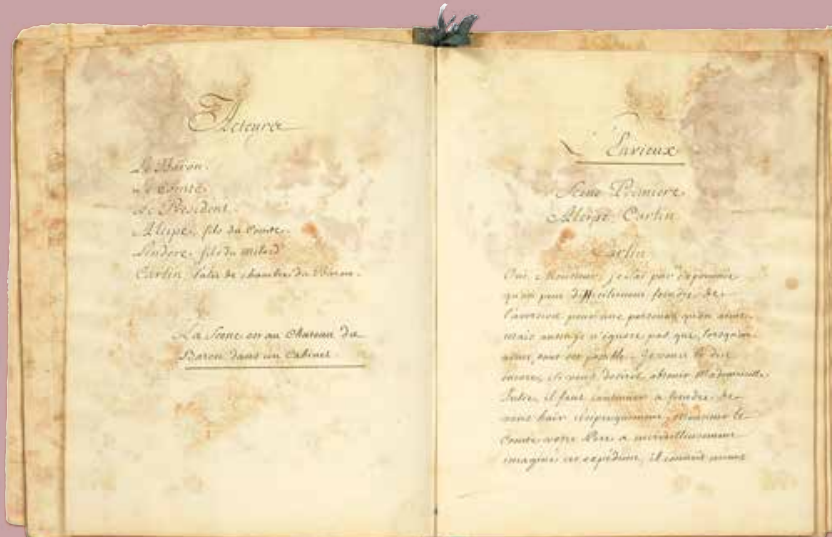 Acteurs
Le Baron.
Le Comte.
Le President.
Alcipe, fils du Comte.
Lindore, fils du Milord
Carlin, valet de chambre du Baron.
La Scene est au Chateau du
Baron dans un Cabinet.
L'Envieux
Scene Premiere
Alcipe, Carlin
Carlin
Oui, Monsieur, je sai par experience
qu'on peut difficilement feindre de
l'aversion pour une personne qu'on aime
mais aussi je n'ignore pas que, lorsqu'on
aime, tout est possible. Je vous le dis
encore, si vous desirez obtenir Mademoiselle
Julie, il faut continuer a feindre de
vous hair reciproquement. Monsieur le
Comte votre Pere a merveilleusement
imaginé cet expedient, il connoit